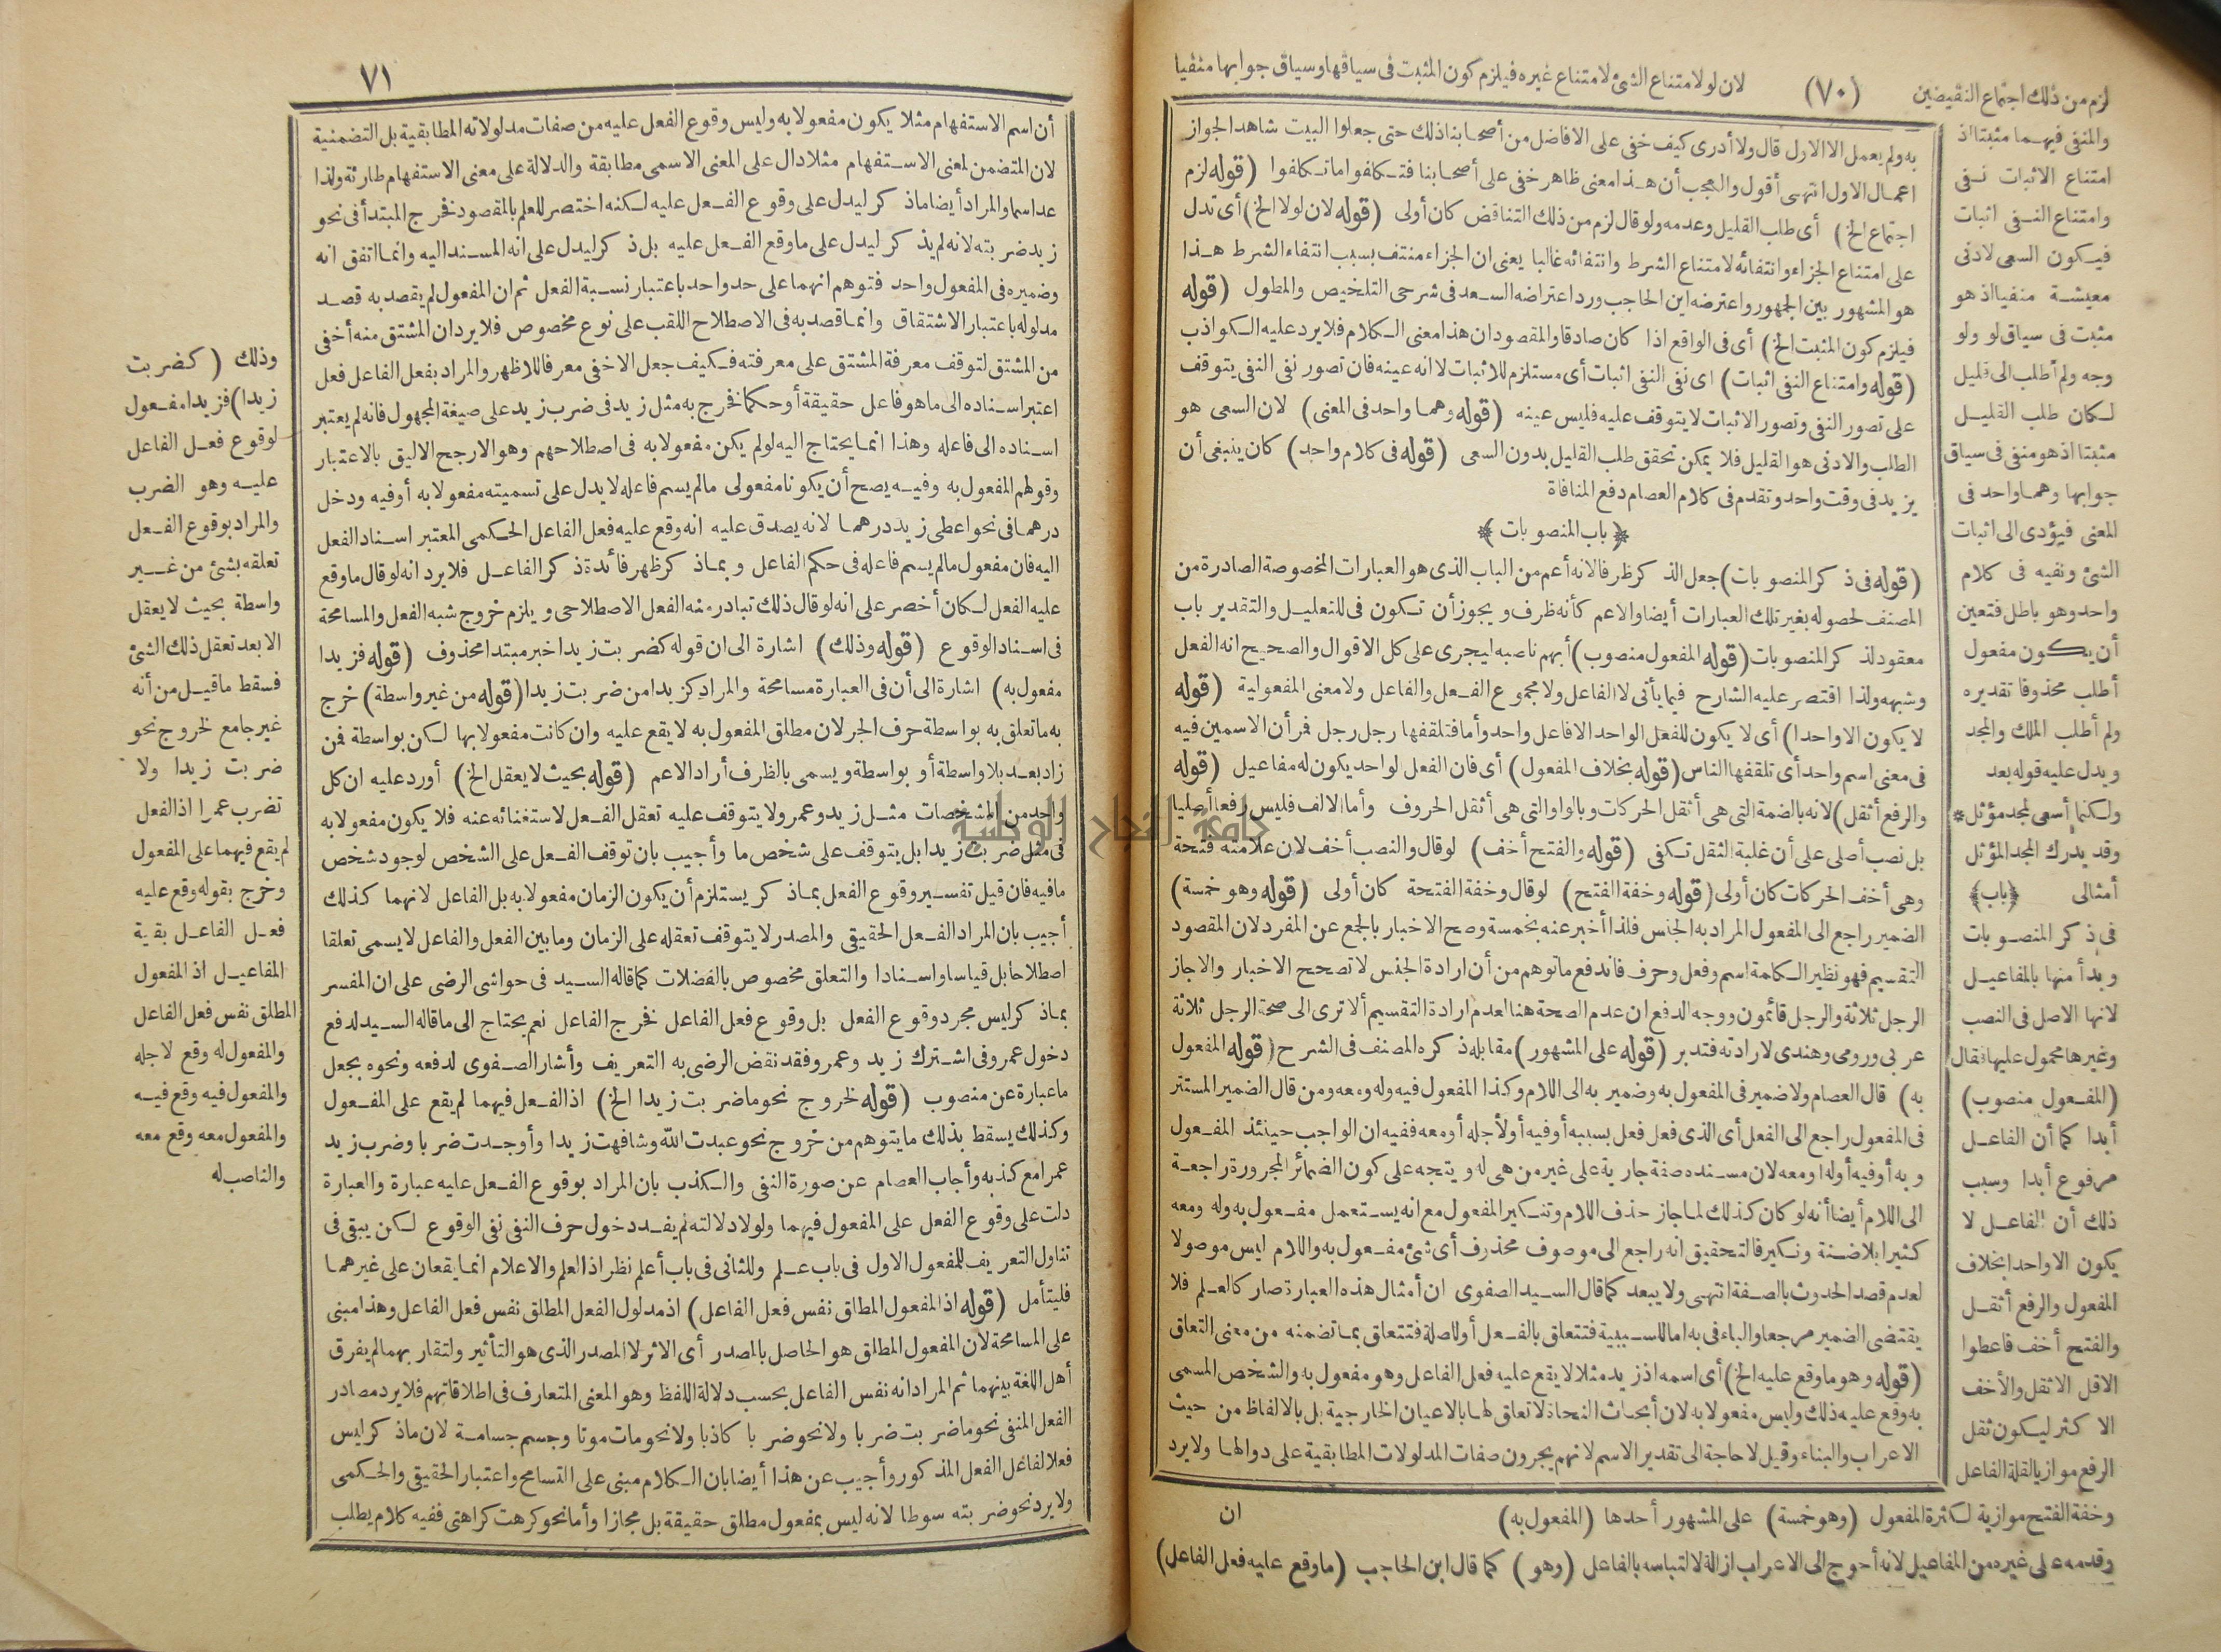 لزم من ذلك اجتماع النقيضين (٧٠) لان لو لامتناع الشئ لامتناع غيره فيلزم كون المثبت فى سياقها وسياق جوابها منفيا
والمنفى فيهما مثبتا اذ
امتناع الاثبات نفى
وامتناع النفى اثبات
فيكون السعى لادنى
معيشة منفيا اذ هو
مثبت فى سياق لو ولو
وجه ولم أطلب الى قليل
لكان طلب القليل
مثبتا اذ هو منفى فى سياق
جوابها وهما واحد فى
المعنى فيؤدى الى اثبات
الشئ ونفيه فى كلام
واحد وهو باطل فتعين
أن يكون مفعول
أطلب محذوفا تقديره
ولم أطلب الملك والمجد
ويدل عليه قوله بعد
ولكنما أسعى لمجد مؤثل *
وقد يدرك المجد المؤثل
أمثالى ﴿باب﴾
فى ذكر المنصوبات
وبدأ منها بالمفاعيل
لانها الاصل فى النصب
وغيرها محمول عليها فقال
(المفعول منصوب)
أبدا كما أن الفاعل
مرفوع أبدا وسبب
ذلك أن الفاعل لا
يكون الا واحدا بخلاف
المفعول والرفع أثقل
والفتح أخف فاعطوا
الاقل الاثقل والأخف
الا كثر ليكون ثقل
الرفع موازيا لقلة الفاعل
وخفة الفتح موازية لكثرة المفعول (وهو خمسة) على المشهور أحدها (المفعول به)
وقدمه على غيره من المفاعيل لانه أحوج الى الاعراب ازالة لالتباسه بالفاعل (وهو) كما قال ابن الحاجب (ما وقع عليه فعل الفاعل)
به ولم يعمل الا الاول قال ولا أدرى كيف خفى على الافاضل من أصحابنا ذلك حتى جعلوا البيت شاهدا لجواز
اعمال الاول انتهى أقول والعجب أن هذا معنى ظاهر خفى على أصحابنا فتكافوا ما تكافوا (قوله لزم
اجتماع الخ) أى طلب القليل وعدمه ولو قال لزم من ذلك التناقض كان أولى (قوله لان لو لا الخ) أى تدل
على امتناع الجزاء وانتفائه لامتناع الشرط وانتفائه غالبا يعنى ان الجزاء منتف بسبب انتفاء الشرط هذا
هو المشهور بين الجمهور واعترضه ابن الحاجب ورد اعتراضه السعد فى شرحى التلخيص والمطول (قوله
فيلزم كون المثبت الخ) أى فى الواقع اذا كان صادقا والمقصود ان هذا معنى الكلام فلا يرد عليه الكواذب
(قوله وامتناع النفى اثبات) اى نفى النفى اثبات أى مستلزم للاثبات لا انه عينه فان تصور نفى النفى يتوقف
على تصور النفى وتصور الاثبات لا يتوقف عليه فليس عينه (قوله وهما واحد فى المعنى) لان السعى هو
الطلب والادنى هو القليل فلا يمكن تحقق طلب القليل بدون السعى (قوله فى كلام واحد) كان ينبغى أن
يزيد فى وقت واحد وتقدم فى كلام العصام دفع المنافاة
﴿باب المنصوبات﴾
(قوله فى ذكر المنصوبات) جعل الذكر ظرفا لانه أعم من الباب الذى هو العبارات المخصوصة الصادرة من
المصنف لحصوله بغير تلك العبارات أيضا والاعم كأنه ظرف ويجوز أن تكون فى للتعليل والتقدير باب
معقود لذكر المنصوبات (قوله المفعول منصوب) أبهم ناصبه ليجرى على كل الاقوال والصحيح انه الفعل
وشبهه ولذا اقتصر عليه الشارح فيما يأتى لا الفاعل ولا مجموع الفعل والفاعل ولا معنى المفعولية (قوله
لا يكون الا واحدا) أى لا يكون للفعل الواحد الا فاعل واحد وأما فتلقفها رجل رجل فمر أن الاسمين فيه
فى معنى اسم واحد أى تلقفها الناس (قوله بخلاف المفعول) أى فان الفعل لواحد يكون له مفاعيل (قوله
والرفع أثقل) لانه بالضمة التى هى أثقل الحركات وبالواو التى هى أثقل الحروف وأما الالف فليس رفعا أصليا
بل نصب أصلى على أن غلبة الثقل تكفى (قوله والفتح أخف) لو قال والنصب أخف لان علامته فتحة
وهى أخف الحركات كان أولى (قوله وخفة الفتح) لو قال وخفة الفتحة كان أولى (قوله وهو خمسة)
الضمير راجع الى المفعول المراد به الجنس فلذا أخبر عنه بخمسة وصح الاخبار بالجمع عن المفرد لان المقصود
التقسيم فهو نظير الكلمة اسم وفعل وحرف فاندفع ما توهم من أن ارادة الجنس لا تصحح الاخبار والا جاز
الرجل ثلاثة والرجل قائمون ووجه الدفع ان عدم الصحة هنا لعدم ارادة التقسيم ألا ترى الى صحة الرجل ثلاثة
عربى ورومى وهندى لارادته فتدبر (قوله على المشهور) مقابله ذكره المصنف فى الشرح (قوله المفعول
به) قال العصام ولا ضمير فى المفعول به وضمير به الى اللام وكذا المفعول فيه وله ومعه ومن قال الضمير المستتر
فى المفعول راجع الى الفعل أى الذى فعل فعل بسببه أو فيه أو لأجله أو معه ففيه ان الواجب حينئذ المفعول
و به أو فيه أوله او معه لان مسنده صفة جارية على غير من هى له ويتجه على كون الضمائر المجرورة راجعة
الى اللام أيضا أنه لو كان كذلك لما جاز حذف اللام وتنكير المفعول مع انه يستعمل مفعول به وله ومعه
كثيرا بلا ضنة ونكير فالتحقيق انه راجع الى موصوف محذوف أى شئ مفعول به واللام ليس موصولا
لعدم قصد الحدوث بالصفة انتهى ولا يبعد كما قال السيد الصفوى ان أمثال هذه العبارة صار كالعلم فلا
يقتضى الضمير مرجعا والباء فى به اما للسببية فتتعلق بالفعل أو للصلة فتتعلق بما تضمنه من معنى التعلق
(قوله وهو ما وقع عليه الخ) أى اسمه اذ زيد مثلا لا يقع عليه فعل الفاعل وهو مفعول به والشخص المسمى
به وقع عليه ذلك وليس مفعولا به لان أبحاث النحاة لا تعلق لها بالاعيان الخارجية بل بالالفاظ من حيث
الاعراب والبناء وقيل لا حاجة الى تقدير الاسم لانهم يجرون صفات المدلولات المطابقية على دوالها ولا يرد
ان
٧١
أن اسم الاستفهام مثلا يكون مفعولا به وليس وقوع الفعل عليه من صفات مدلولاته المطابقية بل التضمنية
لان المتضمن لمعنى الاستفهام مثلا دال على المعنى الاسمى مطابقة والدلالة على معنى الاستفهام طارئة ولذا
عد اسما والمراد أيضا ما ذكر ليدل على وقوع الفعل عليه لكنه اختصر للعلم بالمقصود فخرج المبتدأ فى نحو
زيد ضربته لانه لم يذكر ليدل على ما وقع الفعل عليه بل ذكر ليدل على انه المسند اليه وانما اتفق انه
وضميره فى المفعول واحد فتوهم انهما على حد واحد باعتبار نسبة الفعل ثم ان المفعول لم يقصد به قصد
مدلوله باعتبار الاشتقاق وانما قصد به فى الاصطلاح اللقب على نوع مخصوص فلا يرد ان المشتق منه أخفى
من المشتق لتوقف معرفة المشتق على معرفته فكيف جعل الاخفى معرفا للاظهر والمراد بفعل الفاعل فعل
اعتبر اسناده الى ما هو فاعل حقيقة أو حكما فخرج به مثل زيد فى ضرب زيد على صيغة المجهول فانه لم يعتبر
اسناده الى فاعله وهذا انما يحتاج اليه لو لم يكن مفعولا به فى اصطلاحهم وهو الارجح الاليق بالاعتبار
وقولهم المفعول به وفيه يصح أن يكونا مفعولى مالم يسم فاعله لا يدل على تسميته مفعولا به أو فيه ودخل
درهما فى نحو اعطى زيد درهما لانه يصدق عليه انه وقع عليه فعل الفاعل الحكمى المعتبر اسناد الفعل
اليه فان مفعول مالم يسم فاعله فى حكم الفاعل وبما ذكر ظهر فائدة ذكر الفاعل فلا يرد انه لو قال ما وقع
عليه الفعل لكان أخصر على انه لو قال ذلك تبادر منه الفعل الاصطلاحى ويلزم خروج شبه الفعل والمسامحة
فى اسناد الوقوع (قوله وذلك) اشارة الى ان قوله كضربت زيدا خبر مبتدا محذوف (قوله فزيدا
مفعول به) اشارة الى أن فى العبارة مسامحة والمراد كزيدا من ضربت زيدا (قوله من غير واسطة) خرج
به ما تعلق به بواسطة حرف الجر لان مطلق المفعول به لا يقع عليه وان كانت مفعولا بها لكن بواسطة فمن
زاد بعد بلا واسطة أو بواسطة ويسمى بالظرف أراد الاعم (قوله بحيث لا يعقل الخ) أورد عليه ان كل
واحد من المشخصات مثل زيد وعمرو لا يتوقف عليه تعقل الفعل لاستغنائه عنه فلا يكون مفعولا به
فى مثل ضربت زيدا بل يتوقف على شخص ما وأجيب بان توقف الفعل على الشخص لوجود شخص
ما فيه فان قيل تفسير وقوع الفعل بما ذكر يستلزم أن يكون الزمان مفعولا به بل الفاعل لانهما كذلك
أجيب بان المراد الفعل الحقيقى والمصدر لا يتوقف تعقله على الزمان وما بين الفعل والفاعل لا يسمى تعلقا
اصطلاحا بل قياسا واسنادا والتعلق مخصوص بالفضلات كما قاله السيد فى حواشى الرضى على ان المفسر
بما ذكر ليس مجرد وقوع الفعل بل وقوع فعل الفاعل فخرج الفاعل نعم يحتاج الى ما قاله السيد لدفع
دخول عمرو فى اشترك زيد وعمرو فقد نقض الرضى به التعريف وأشار الصفوى لدفعه ونحوه بجعل
ما عبارة عن منصوب (قوله لخروج نحو ما ضربت زيدا الخ) اذ الفعل فيهما لم يقع على المفعول
وكذلك يسقط بذلك ما يتوهم من خروج نحو عبدت الله وشافهت زيدا وأوجدت ضربا وضرب زيد
عمرا مع كذبه وأجاب العصام عن صورة النفى والكذب بان المراد بوقوع الفعل عليه عبارة والعبارة
دلت على وقوع الفعل على المفعول فيهما ولولا دلالته لم يفد دخول حرف النفى نفى الوقوع لكن يبقى فى
تناول التعريف للمفعول الاول فى باب علم وللثانى فى باب أعلم نظر اذ العلم والاعلام انما يقعان على غيرهما
فليتأمل (قوله اذ المفعول المطلق نفس فعل الفاعل) اذ مدلول الفعل المطلق نفس فعل الفاعل وهذا مبنى
على المسامحة لان المفعول المطلق هو الحاصل بالمصدر أى الاثر لا المصدر الذى هو التأثير ولتقاربهما لم يفرق
أهل اللغة بينهما ثم المراد انه نفس الفاعل بحسب دلالة اللفظ وهو المعنى المتعارف فى اطلاقاتهم فلا يرد مصادر
الفعل المنفى نحو ما ضربت ضربا ولا نحو ضربا كاذبا ولا نحو مات موتا وجسم جسامة لان ما ذكر ليس
فعلا لفاعل الفعل المذكور وأجيب عن هذا أيضا بان الكلام مبنى على التسامح واعتبار الحقيقى والحكمى
ولا يرد نحو ضربته سوطا لانه ليس بمفعول مطلق حقيقة بل مجازا وأما نحو كرهت كراهتى ففيه كلام يطلب
وذلك (كضربت
زيدا) فزيدا مفعول
لوقوع فعل الفاعل
عليه وهو الضرب
والمراد بوقوع الفعل
تعلقه بشئ من غير
واسطة بحيث لا يعقل
الا بعد تعقل ذلك الشئ
فسقط ما قيل من أنه
غير جامع لخروج نحو
ضربت زيدا ولا
تضرب عمرا اذ الفعل
لم يقع فيهما على المفعول
وخرج بقوله وقع عليه
فعل الفاعل بقية
المفاعيل اذ المفعول
المطلق نفس فعل الفاعل
والمفعول له وقع لاجله
والمفعول فيه وقع فيه
والمفعول معه وقع معه
والناصب له
جامعة النجاح الوطنية